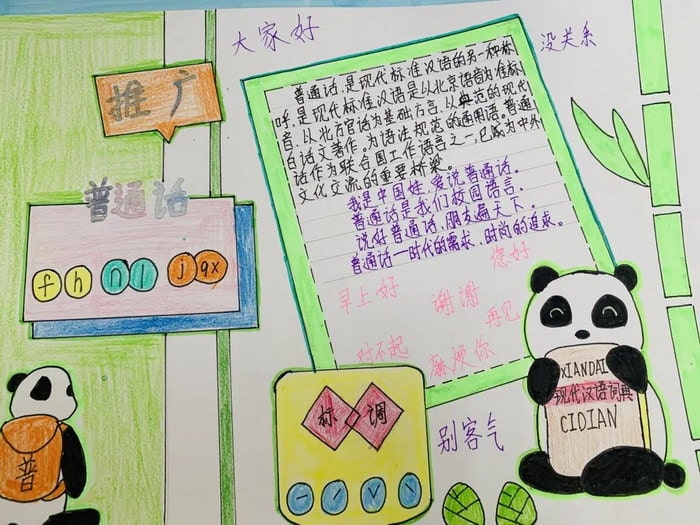 大家好
没关系
推广
普通话
f h n l j qx
普通话是现代标准汉语的另一种称
呼,是现代标准汉语是以北京语音为准标
音.以北方官话为基础方言.以典范的现代
白话文著作.为语法规范的通用语.普通
话作为联合国工作语言之一,已成为中外
文化交流的重要桥梁。
我是中国娃,爱说普通话.
普通话是我们校园语言.
说好普通话,朋友遍天下.
普通话一时代的需求,时尚的追求。
您好
早上好 谢谢 再见
对不起 麻烦你
标调
ˉ ˊ ˇ ˋ
别客气
XIANDAI
现代汉语词典
CIDIAN
普